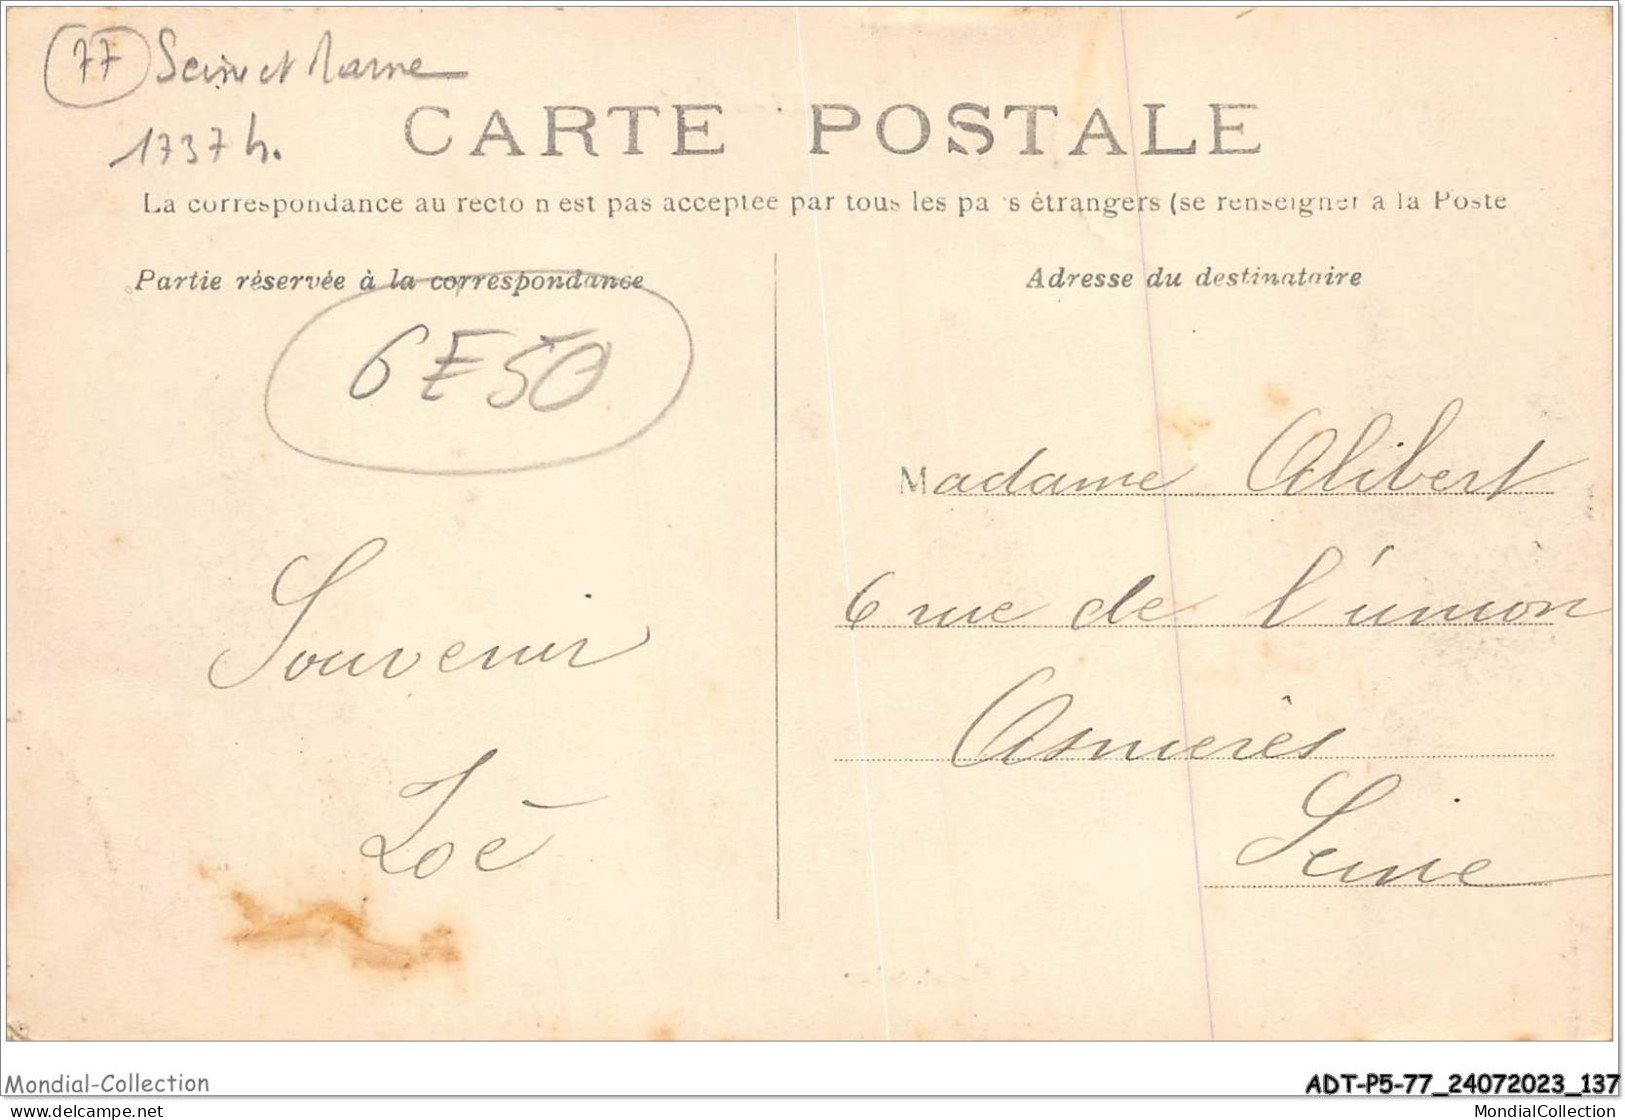 77 Seine et Marne
1737 h.
CARTE POSTALE
La correspondance au recto n est pas acceptee par tous les pa s étrangers (se renseigner a la Poste
Partie réservée à la correspondance
Adresse du destinataire
6E50
Madame Alibert
6 rue de l'union
Asnières
Seine
Souvenir
Zoé
Mondial-Collection
ADT-P5-77_24072023_137
Copyright for seller's shop
MondialCollection